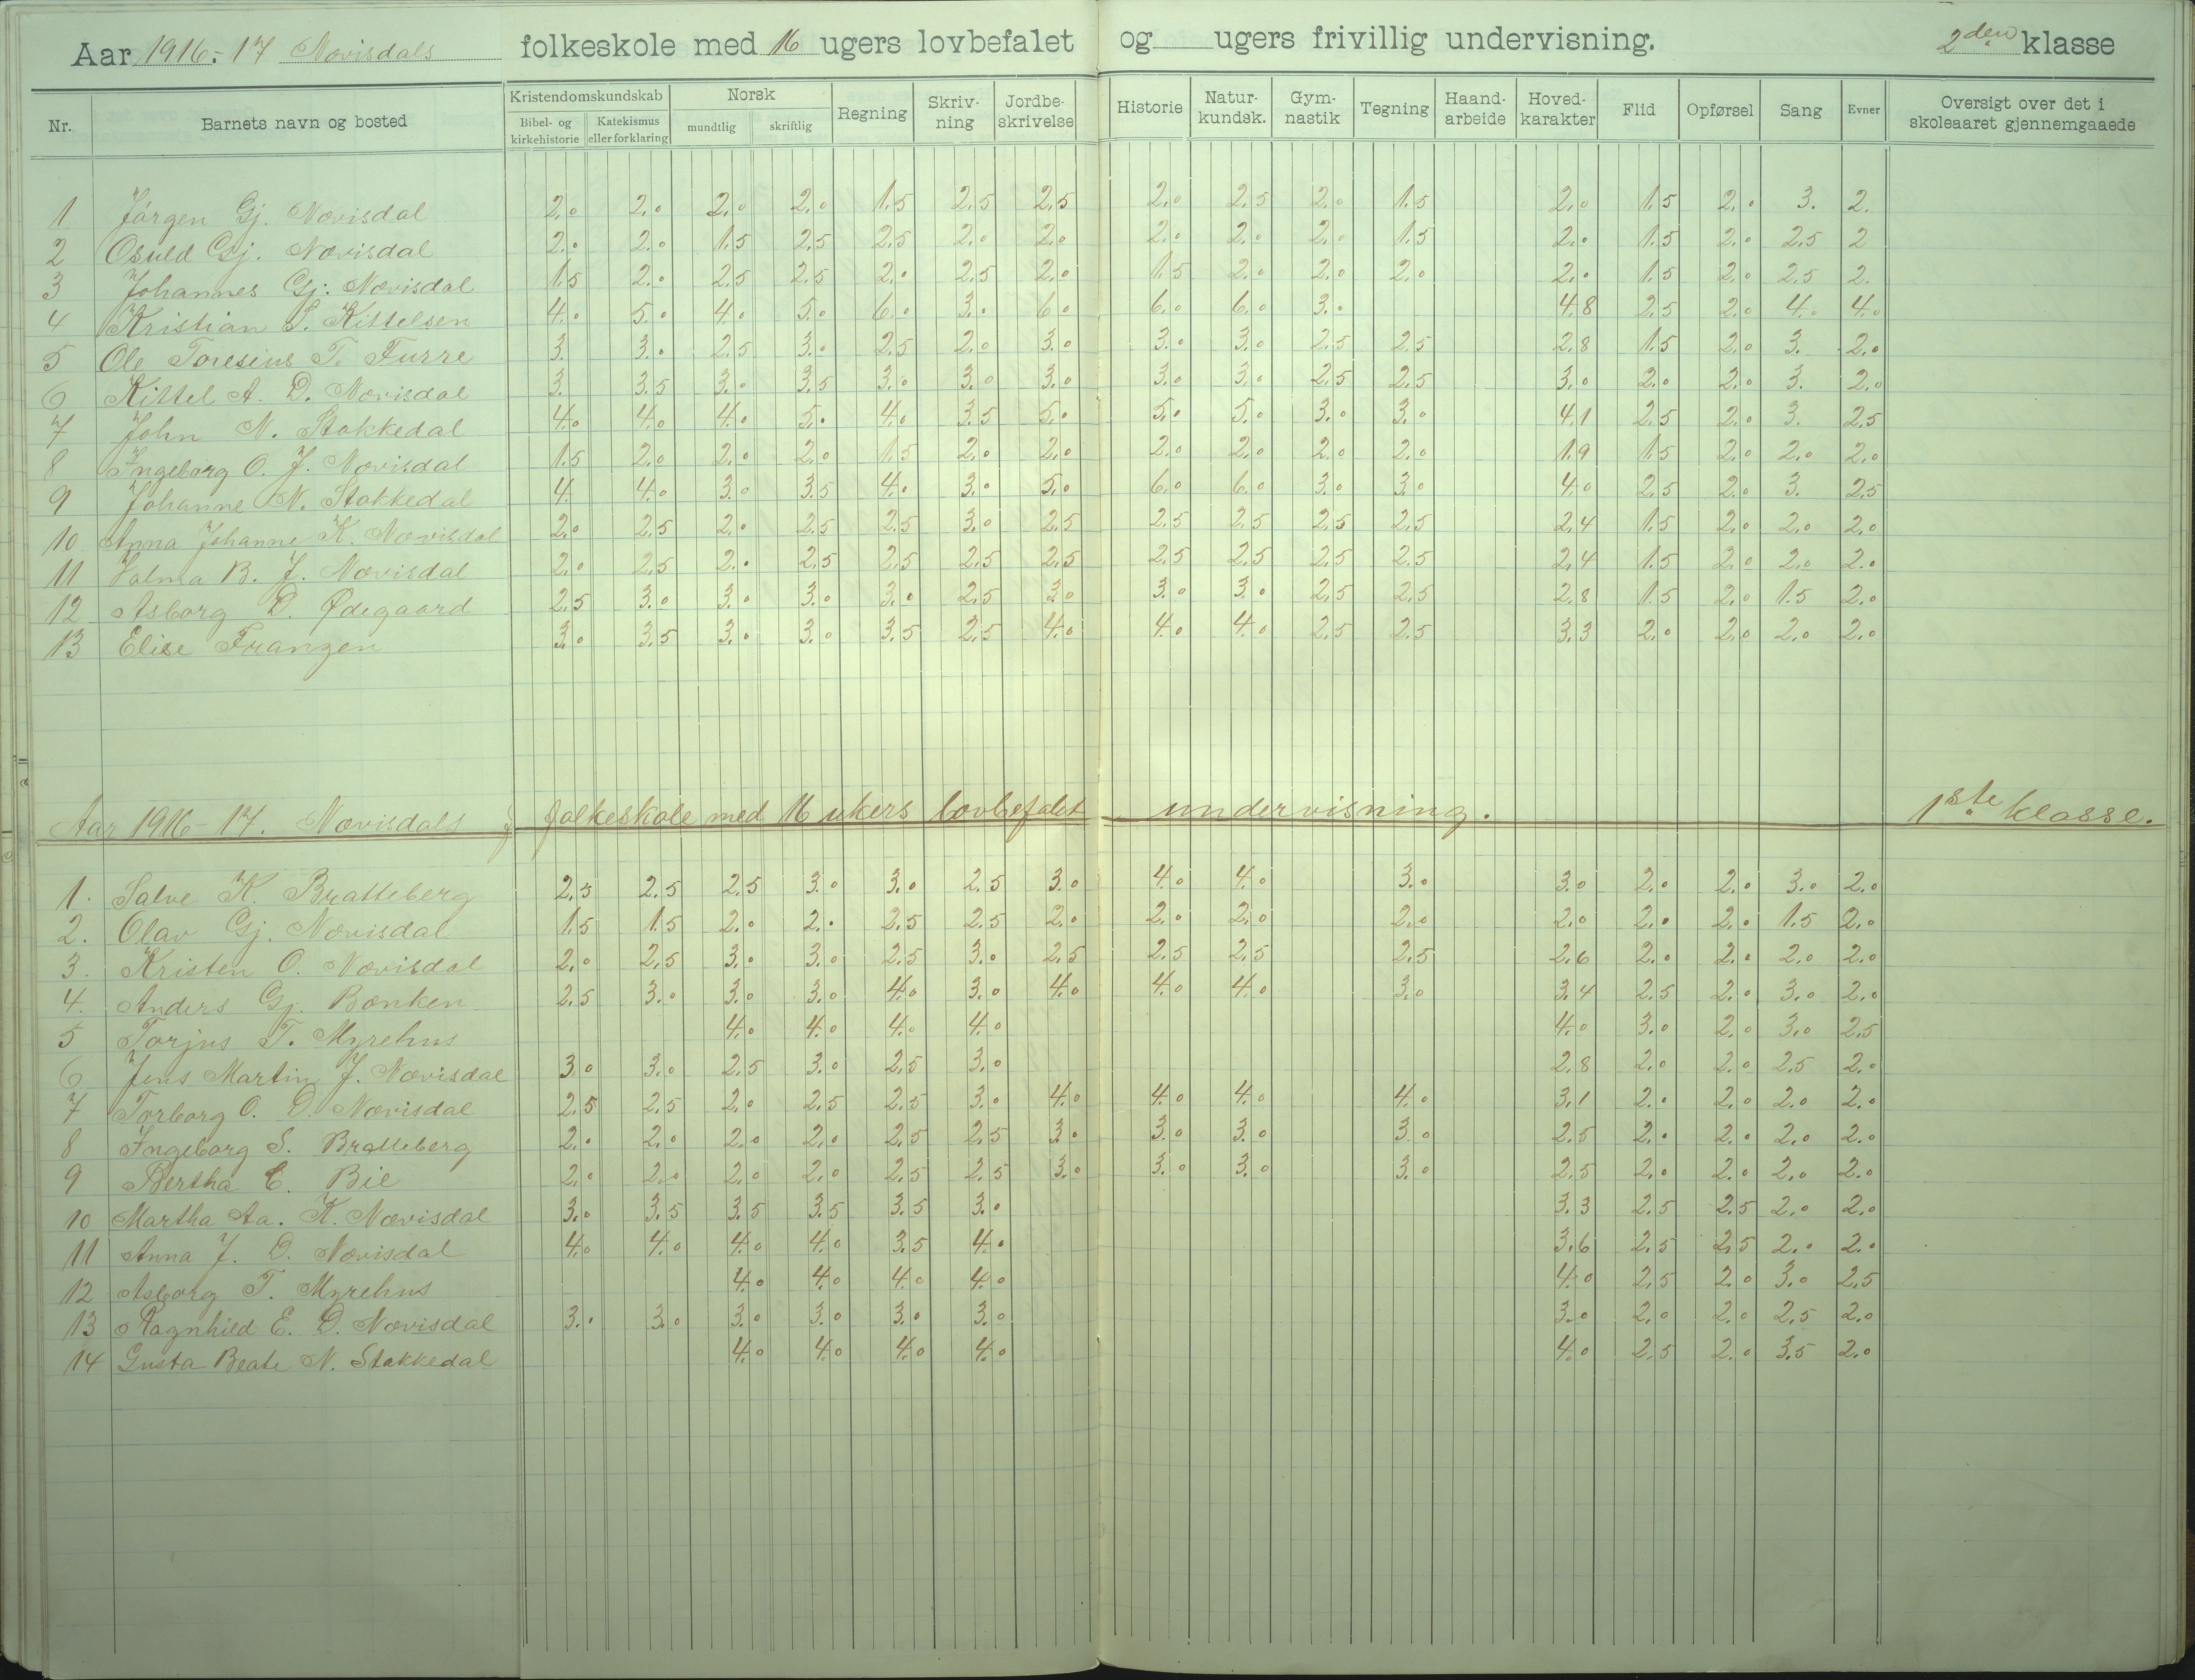 Aar 1916-17 Nævisdals folkeskole med 16 ugers lovbefalet og ugers frivillig undervisning. 2den klasse
Nr. Barnets navn og bosted Kristendomskundskab Bibel- og kirkehistorie Katekismus eller forklaring Norsk mundtlig skriftlig Regning Skrivning Jordbeskrivelse Historie Naturkundsk. Gymnastik Tegning Haandarbeide Hovedkarakter Flid Opførsel Sang Evner Oversigt over det i skoleaaret gjennemgaaede
1 Jørgen Gj. Nævisdal 2,0 2,0 2,0 2,0 1,5 2,5 2,5 2,0 2,5 2,0 1,5 2,0 1,5 2,0 3. 2.
2 Osuld Gj. Nævisdal 2,0 2,0 1,5 2,5 2,5 2,0 2,0 2,0 2,0 2,0 1,5 2,0 1,5 2,0 2,5 2
3 Johannes Gj. Nævisdal 1,5 2,0 2,5 2,5 2,0 2,5 2,0 1,5 2,0 2,0 2,0 2,0 1,5 2,0 2,5 2.
4 Kristian S. Kittelsen 4,0 5,0 4,0 5,0 6,0 3,0 6,0 6,0 6,0 3,0 4,8 2,5 2,0 4,0 4,0
5 Ole Toresius T. Furre 3. 3,0 2,5 3,0 2,5 2,0 3,0 3,0 3,0 2,5 2,5 2,8 1,5 2,0 3. 2,0
6 Kittel A. D. Nævisdal 3. 3,5 3,0 3,5 3,0 3,0 3,0 3,0 3,0 2,5 2,5 3,0 2,0 2,0 3. 2,0
7 John N. Stokkedal 4,0 4,0 4,0 5,0 4,0 3,5 5,0 5,0 5,0 3,0 3,0 4,1 2,5 2,0 3. 2,5
8 Ingeborg O. J. Nævisdal 1,5 2,0 2,0 2,0 1,5 2,0 2,0 2,0 2,0 2,0 2,0 1,9 1,5 2,0 2,0 2,0
9 Johanne N. Stokkedal 4. 4,0 3,0 3,5 4,0 3,0 5,0 6,0 6,0 3,0 3,0 4,0 2,5 2,0 3. 2,5
10 Anna Johanne K. Nævisdal 2,0 2,5 2,0 2,5 2,5 3,0 2,5 2,5 2,5 2,5 2,5 2,4 1,5 2,0 2,0 2,0
11 Valma B. J. Nævisdal 2,0 2,5 2,0 2,5 2,5 2,5 2,5 2,5 2,5 2,5 2,5 2,4 1,5 2,0 2,0 2,0
12 Asborg D. Ødegaard 2,5 3,0 3,0 3,0 3,0 2,5 3,0 3,0 3,0 2,5 2,5 2,8 1,5 2,0 1,5 2,0
13 Elise Frangen 3,0 3,5 3,0 3,0 3,5 2,5 4,0 4,0 4,0 2,5 2,5 3,3 2,0 2,0 2,0 2,0
Aar 1916-17. Nævisdals folkeskole med 16 ukers lovbefalet undervisning. 1ste klasse.
1. Salve K. Bratteberg 2,5 2,5 2,5 3,0 3,0 2,5 3,0 4,0 4,0 3,0 3,0 2,0 2,0 3,0 2,0
2. Olav Gj. Nævisdal 1,5 1,5 2,0 2,0 2,5 2,5 2,0 2,0 2,0 2,0 2,0 2,0 2,0 1,5 2,0
3. Kristen O. Nævisdal 2,0 2,5 3,0 3,0 2,5 3,0 2,5 2,5 2,5 2,5 2,6 2,0 2,0 2,0 2,0
4. Anders Gj. Bænken 2,5 3,0 3,0 3,0 4,0 3,0 4,0 4,0 4,0 3,0 3,4 2,5 2,0 3,0 2,0
5 Torjus T. Myrehus 4,0 4,0 4,0 4,0 4,0 3,0 2,0 3,0 2,5
6 Jens Martin J. Nævisdal 3,0 3,0 2,5 3,0 2,5 3,0 2,8 2,0 2,0 2,5 2,0
7 Torborg O. D. Nævisdal 2,5 2,5 2,0 2,5 2,5 3,0 4,0 4,0 4,0 4,0 3,1 2,0 2,0 2,0 2,0
8 Ingeborg S. Bratteberg 2,0 2,0 2,0 2,0 2,5 2,5 3,0 3,0 3,0 3,0 2,5 2,0 2,0 2,0 2,0
9 Bertha E. Bie 2,0 2,0 2,0 2,0 2,5 2,5 3,0 3,0 3,0 3,0 2,5 2,0 2,0 2,0 2,0
10 Martha Aa. K. Nævisdal 3,0 3,5 3,5 3,5 3,5 3,0 3,3 2,5 2,5 2,0 2,0
11 Anna J. D. Nævisdal 4,0 4,0 4,0 4,0 3,5 4,0 3,6 2,5 2,5 2,0 2,0
12 Asborg T. Myrehus 4,0 4,0 4,0 4,0 4,0 2,5 2,0 3,0 2,5
13 Ragnhild E. D. Nævisdal 3,0 3,0 3,0 3,0 3,0 3,0 3,0 2,0 2,0 2,5 2,0
14 Gusta Beate N. Stokkedal 4,0 4,0 4,0 4,0 4,0 2,5 2,0 3,5 2,0